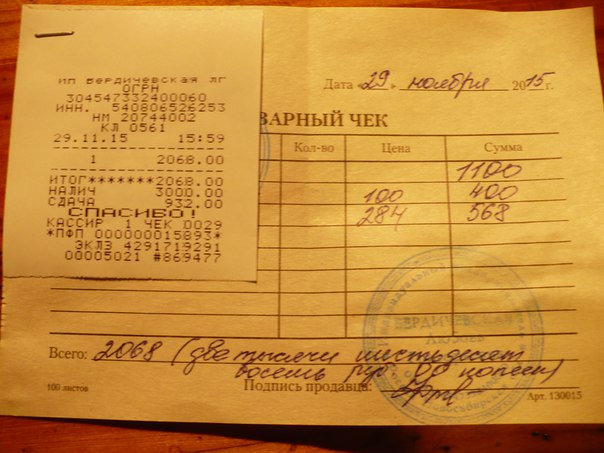 ИП Бердичевская ЛГ
ОГРН
304547332400060
ИНН. 540806526253
НМ 20744002
КЛ 0561
29.11.15 15:59
1 2068.00
ИТОГ*******2068.00
НАЛИЧ 3000.00
СДАЧА 932.00
СПАСИБО!
КАССИР 1 ЧЕК 0029
*ПФП 000000015893*
ЭКЛЗ 4291719291
00005021 #869477
Дата „29“ ноября 2015г.
ВАРНЫЙ ЧЕК
Кол-во Цена Сумма
1100
100 400
284 568
БЕРДИЧЕВСКАЯ
Всего: 2068 (две тысячи шестьдесят
восемь руб 00 копеек)
100 листов
Подпись продавца:
Арт. 130015